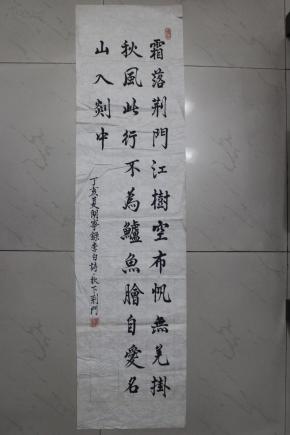 霜落荆門江樹空布帆無羌掛
秋風此行不為鱸魚膾自愛名
山入剡中
丁亥夏閑寧錄李白詩秋下荆門